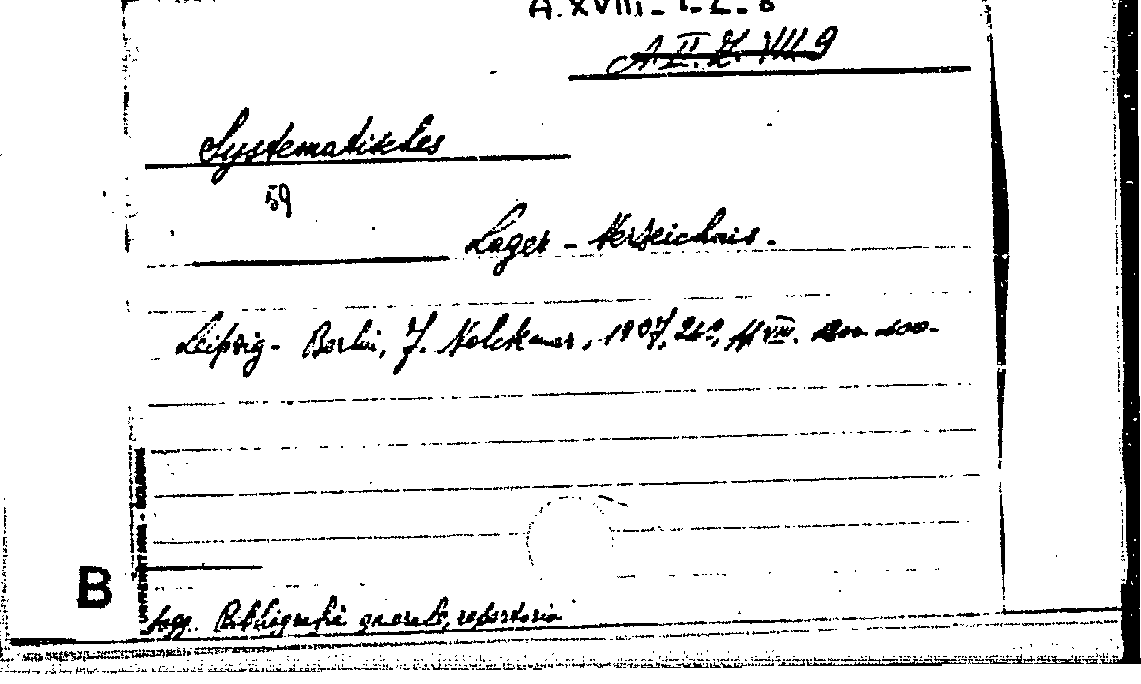 A. XVIII - 1 - 2 - 8
A. II. Z. VIII 9
Systematisches
59
Lager - Verzeichnis.
Leipzig - Berlin, J. Volckmar, 1907,
UNIVERSITARIA - BOLOGNA
B
Sogg. Bibliografie generale, repertorio